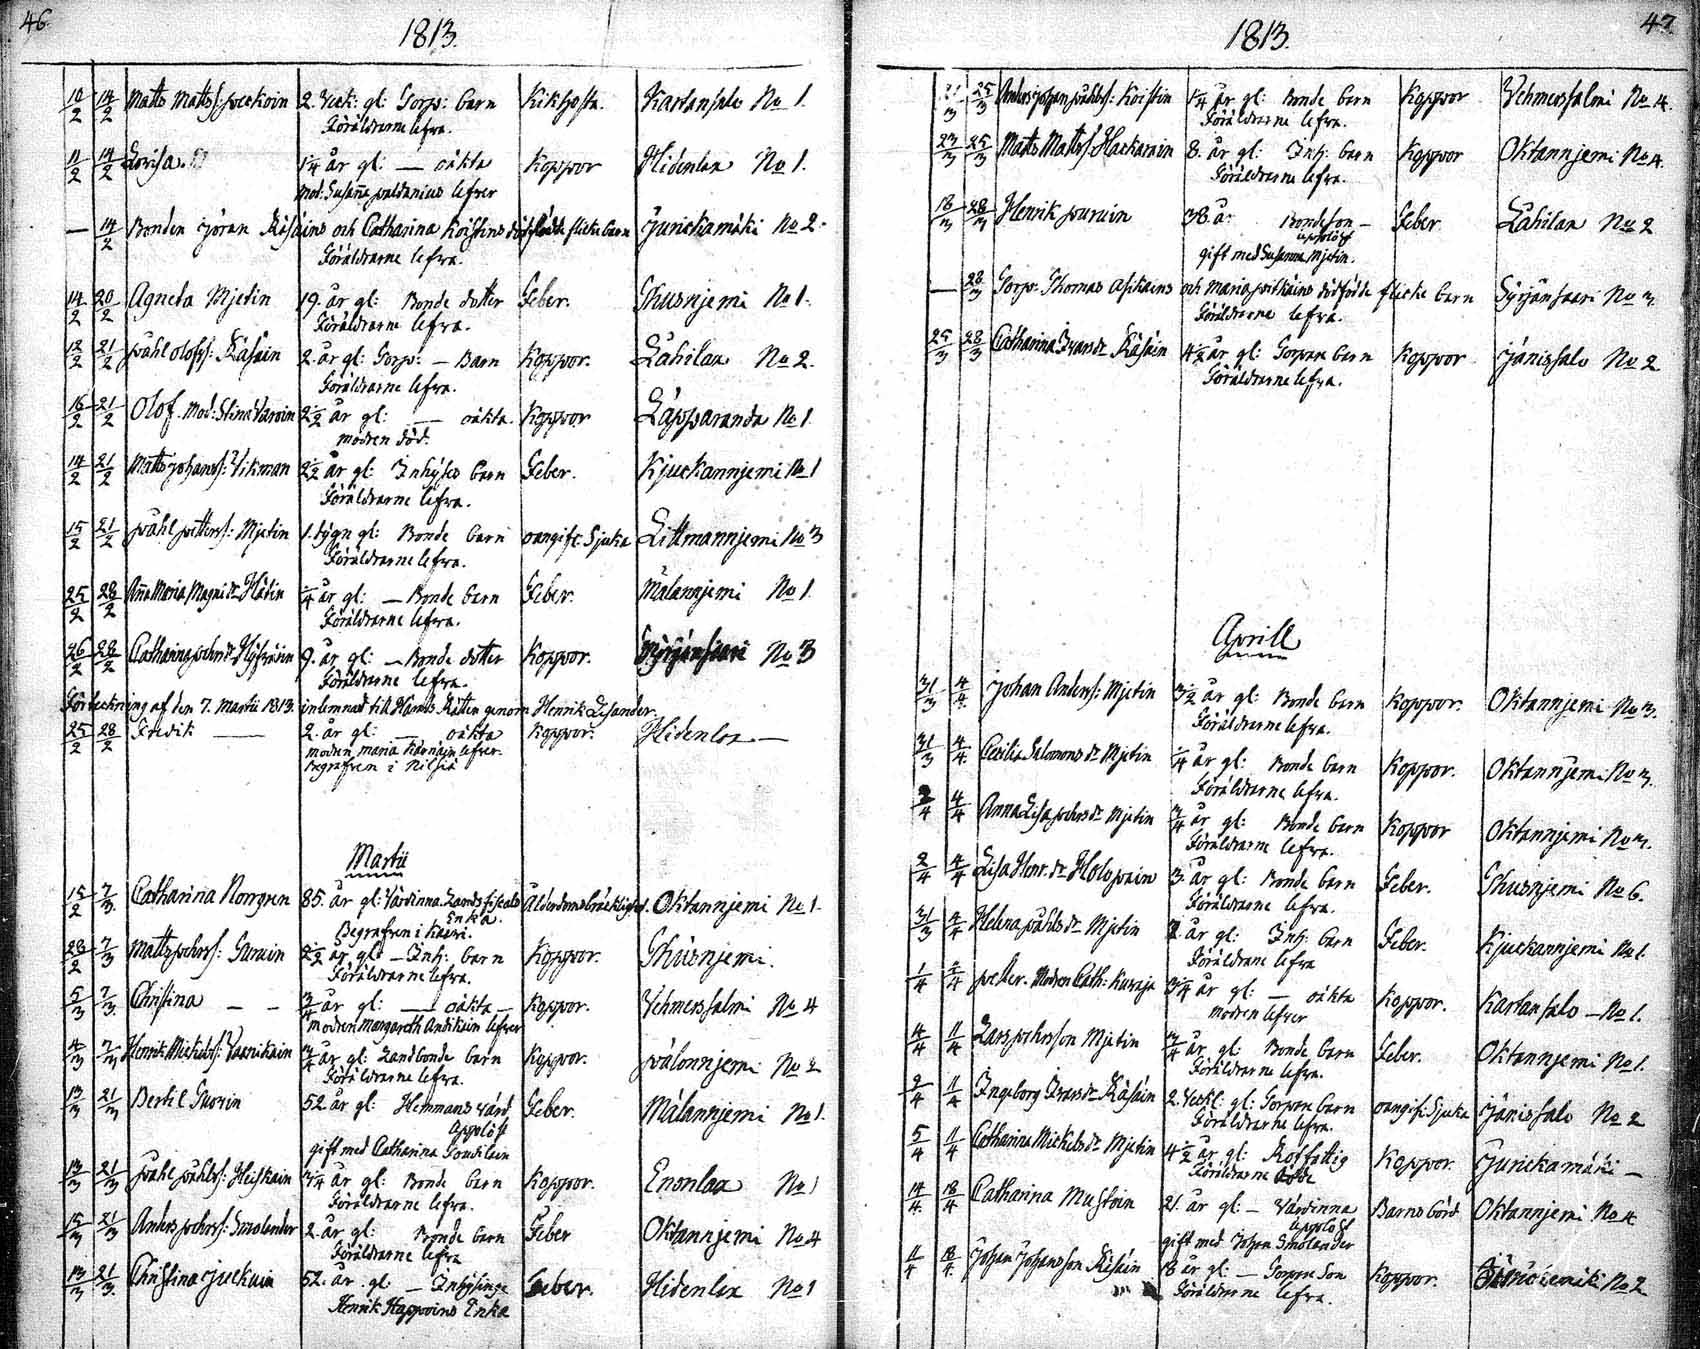 46.
1813.
10/2 14/2 Matts Mattss: 2. Veck: gl: Torp: barn Kikhosta. Kartansalo No 1.
Föräldrarne lefva.
11/2 14/2 Lovisa 1/4 år gl: — oäkta Koppor Hidenlax No 1.
Mod: Susanna lefver
— 14/2 Bonden Jöran Räsäins och Catharina dödfödde flicke barn Jurickamäki No 2.
Föräldrarne lefva.
14/2 20/2 Agneta Mjetin 19. år gl: Bonde dotter Feber. No 1.
Föräldrarne lefva.
12/2 21/2 Påhl Olofss: Räsäin 2. år gl: Torp: — Barn Koppor. Lahilax No 2.
Föräldrarne lefva.
16/2 21/2 Olof. Mod: Stina 2 1/2 år gl: — oäkta. Koppor Läpparanda No 1.
modren död.
14/2 21/2 Matts Johanss: Vikman 2 1/2 år gl: Inhyses barn Feber. Kjuckannjemi No 1
Föräldrarne lefva.
15/2 21/2 Påhl Petterss: Mjetin 1. dygn gl: Bonde barn oangifv: Sjuka Littmannjemi No 3
Föräldrarne lefva.
25/2 28/2 Anna Maria Magni dr 1/4 år gl: — Bonde barn Feber. Mälannjemi No 1.
Föräldrarne lefva.
26/2 28/2 Catharina Pehrs dr 9. år gl: — Bonde dotter Koppor. Syrjänsaari No 3
Föräldrarne lefva.
Förteckning af den 7. Martii 1813. inlemnad till Härads Rätten genom Henrik Lisander.
25/2 28/2 Fredik — 2. år gl: — oäkta Koppor. Hidenlax —
modren maria lefver.
Begrafven i Nilsiä
Martii
15/2 7/3 Catharina Norrgren 85. år gl: Värdinna. Landsfiscals Ålderdoms bräcklighet. Oktannjemi No 1.
Enka.
Begrafven i Kaavi.
28/2 7/3 Matts Pehrss: 2 1/2 år gl: — Inh: barn Koppor.
Föräldrarne lefva.
5/3 7/3 Christina — — 3/4 år gl: — oäkta — Koppor. Vehmerssalmi No 4
modren Margareth lefver
4/3 7/3 Henrik Mickelss: 3/4 år gl: Landbonde barn Koppor. Pålonnjemi No 2
Föräldrarne lefva.
13/3 21/3 Bertil 52. år gl: Hemmans värd, Feber. Mälannjemi No 1.
Applöst
gift med Catharina
13/3 21/3 Påhl Påhlss: Heiskain 3/4 år gl: Bonde barn Koppor. Enonlax No 1
Föräldrarne lefva.
15/3 21/3 Anders Pehrss: Smolander 2. år gl: Bonde barn Feber Oktannjemi No 4
Föräldrarne lefva
13/3 21/3 Christina 52. år gl — Inhysinge Feber. Hidenlax No 1
Henrik Happoins Enka
47.
1813.
25/3 Anders Johan Påhlss: 1/4 år gl: Bonde barn Koppor Vehmerssalmi No 4.
Föräldrarne lefva.
23/3 25/3 Matts Mattss: Hackarain 8. år gl: Inh: barn Koppor Oktannjemi No 4.
Föräldrarne lefva.
18/3 28/3 Henrik Puruin 38. år Bondeson — Feber Lahilax No 2
applöst
gift med Susanna Mjetin.
— 28/3 Torp: Thomas Asikains och Maria dödfödde flicke barn Syrjänsaari No 3.
Föräldrarne lefva.
25/3 28/3 Catharina Ivars dr Räsäin 4 1/2 år gl: Torpare barn Koppor Jänissalo No 2
Föräldrarne lefva.
Aprill
31/3 4/4 Johan Anderss: Mjetin 3 1/2 år gl: Bonde barn Koppor. Oktannjemi No 3.
Föräldrarne lefva.
31/3 4/4. Cecilia Salomons dr Mjetin 1/4 år gl: Bonde barn Koppor. Oktannjemi No 3.
Föräldrarne lefva.
2/4 4/4 Anna Lisa Pehrs dr Mjetin 3/4 år gl: Bonde barn Koppor Oktannjemi No 3.
Föräldrarne lefva.
2/4 4/4 Lisa Henr. dr Holopain 3. år gl: Bonde barn Feber. No 6.
Föräldrarne lefva.
31/3 4/4 Helena Påhls dr Mjetin 2. år gl: Inh: barn Feber. Kjuckannjemi No 1.
Föräldrarne lefva
1/4 4/4 Petter. Modren Cath: Kuraja 3/4 år gl: — oäkta Koppor. Kartansalo — No 1.
modren lefver
4/4 11/4 Lars Pehrsson Mjetin 3/4 år gl: Bonde barn Feber. Oktannjemi No 1.
Föräldrarne lefva.
9/4 11/4 Ingeborg Ivars dr Räsäin 2. Veck: gl: Torpare barn oangifv: Sjuka Jänissalo No 2
Föräldrarne lefva.
5/4 11/4 Catharina Mickels dr Mjetin 4 1/2 år gl: Rotfattig Koppor. Jurickamäki —
Föräldrarne döde
14/4 18/4 Catharina Mustoin 21. år gl: — Värdinna Barns börd Oktannjemi No 4
applöst
gift med Johan Smolander
11/4 18/4. Johan Johansson Räsäin 18 år gl: — Torpare Son Koppor. No 2
Föräldrarne lefva.